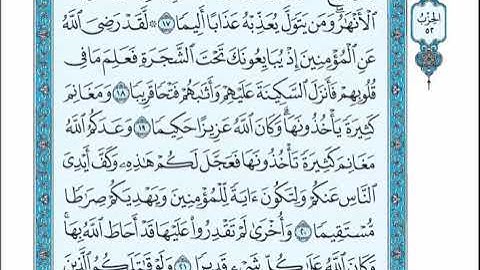 الْأَنْهَٰرُ وَمَن يَتَوَلَّ يُعَذِّبْهُ عَذَابًا أَلِيمًا ١٧ ۞ لَّقَدْ رَضِيَ اللَّهُ
الحزب ٥٢
عَنِ الْمُؤْمِنِينَ إِذْ يُبَايِعُونَكَ تَحْتَ الشَّجَرَةِ فَعَلِمَ مَا فِي
قُلُوبِهِمْ فَأَنزَلَ السَّكِينَةَ عَلَيْهِمْ وَأَثَٰبَهُمْ فَتْحًا قَرِيبًا ١٨ وَمَغَانِمَ
كَثِيرَةً يَأْخُذُونَهَا وَكَانَ اللَّهُ عَزِيزًا حَكِيمًا ١٩ وَعَدَكُمُ اللَّهُ
مَغَانِمَ كَثِيرَةً تَأْخُذُونَهَا فَعَجَّلَ لَكُمْ هَٰذِهِ وَكَفَّ أَيْدِيَ
النَّاسِ عَنكُمْ وَلِتَكُونَ ءَايَةً لِّلْمُؤْمِنِينَ وَيَهْدِيَكُمْ صِرَٰطًا
مُّسْتَقِيمًا ٢٠ وَأُخْرَىٰ لَمْ تَقْدِرُوا عَلَيْهَا قَدْ أَحَاطَ اللَّهُ بِهَا
وَكَانَ اللَّهُ عَلَىٰ كُلِّ شَيْءٍ قَدِيرًا ٢١ وَلَوْ قَٰتَلَكُمُ الَّذِينَ